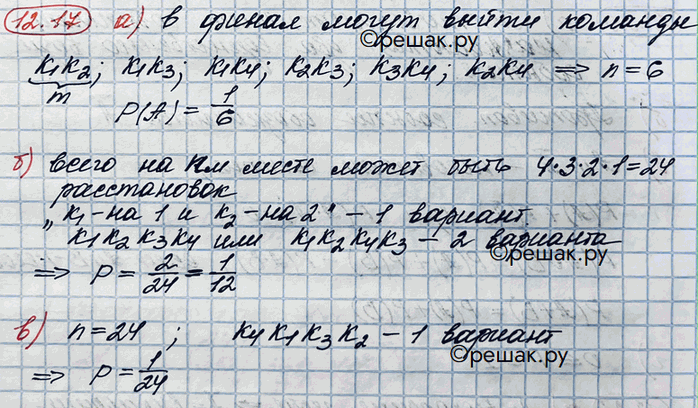 12.17 а) в финал могут выйти команды
©решак.ру
K1K2; K1K3; K1K4; K2K3; K3K4; K2K4 ⇒ n = 6
m
P(A) = 1/6
б) всего на м месте может быть 4·3·2·1=24
расстановок
„K1-на 1 и K2-на 2" - 1 вариант
K1K2K3K4 или K1K2K4K3 - 2 варианта
©решак.ру
⇒ P = 2/24 = 1/12
в) n = 24 ; K4K1K3K2 - 1 вариант
©решак.ру
⇒ P = 1/24